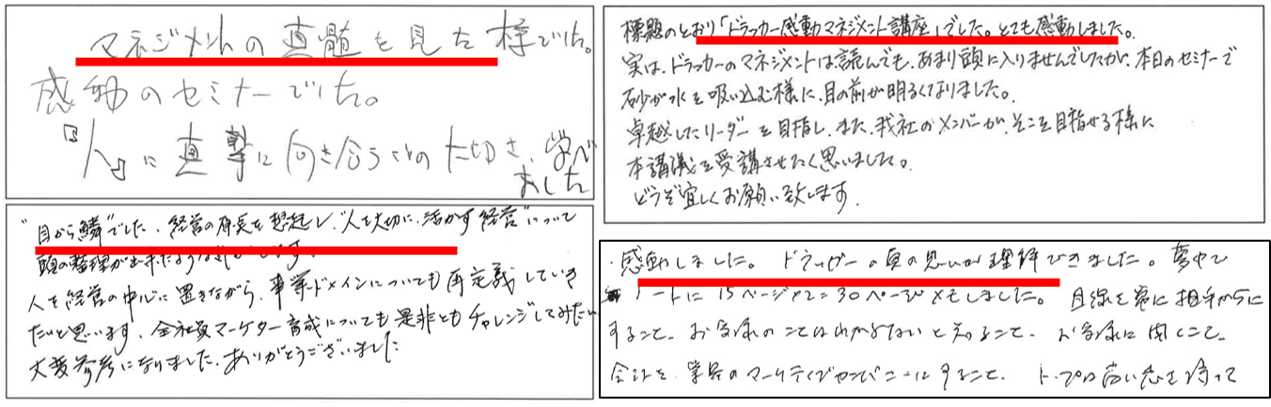 マネジメントの真髄を見た様でした。
感動のセミナーでした。
『人』に真摯に向き合う事の大切さ、学べ
ました
標題のとおり「ドラッカー感動マネジメント講座」でした。とても感動しました。
実は、ドラッカーのマネジメントは読んでも、あまり頭に入りませんでしたが、本日のセミナーで
砂が水を吸い込む様に、目の前が明るくなりました。
卓越したリーダーを目指し、また、我社のメンバーが、そこを目指せる様に
本講義を受講させたく思いました。
どうぞ宜しくお願い致します。
"目から鱗"でした、経営の原点を想起し、"人を大切に、活かす経営"について
頭の整理が出来たような
人を経営の中心に置きながら、事業ドメインについても再定義していき
たいと思います、全社員マーケター育成についても是非ともチャレンジしてみたい
大変参考になりました、ありがとうございました
・感動しました。ドラッカーの真の思いが理解できました。夢中で
ノートに15ページ×2=30ページメモしました。目線を常に相手からに
すること、お客様のことはわからないと知ること、お客様に聞くこと、
会社を、業界のマーケティングカンパニーにすること、トップは高い志を持って